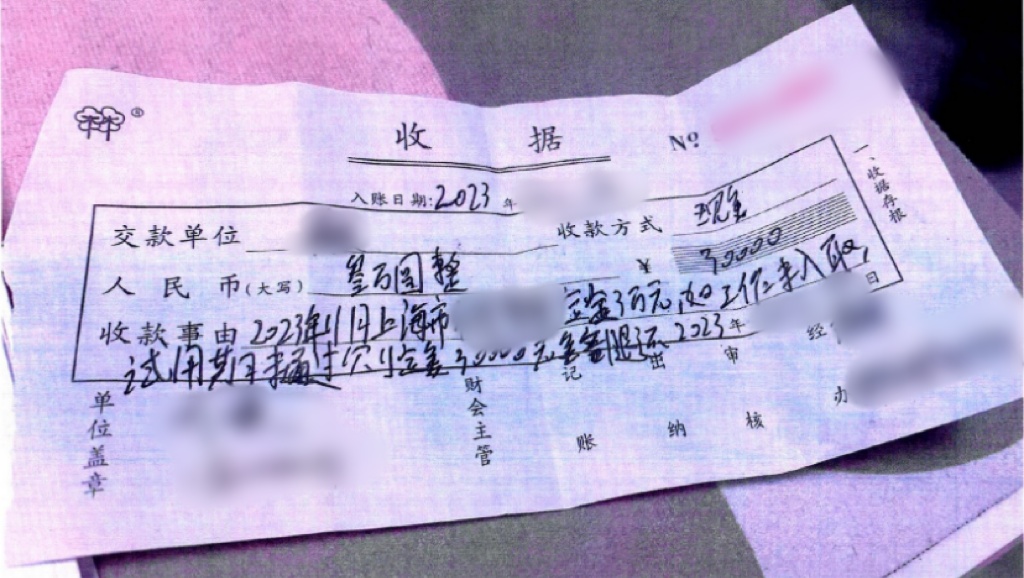 收 据 Nº
入账日期:2023 年
交款单位 收款方式 现金
人民币(大写) 叁万圆整 ¥ 30000
收款事由 2023年11月上海市 定金3万元,如工作未入职,
试用期未通过,则定金30000元全额退还 2023 年 日
单位盖章
财会主管
记账
出纳
审核
经办
一、收据存根